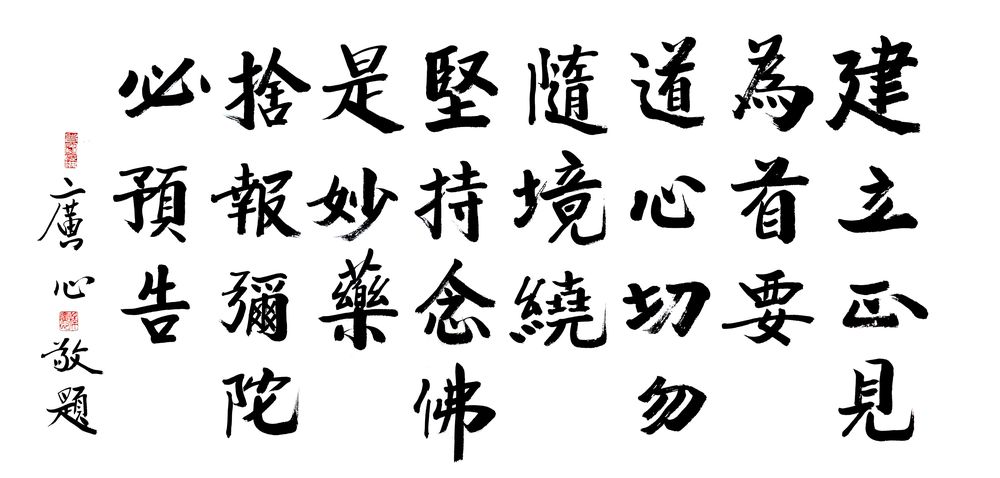 建立正見
為首要
道心切勿
隨境繞
堅持念佛
是妙藥
捨報彌陀
必預告
廣心敬題